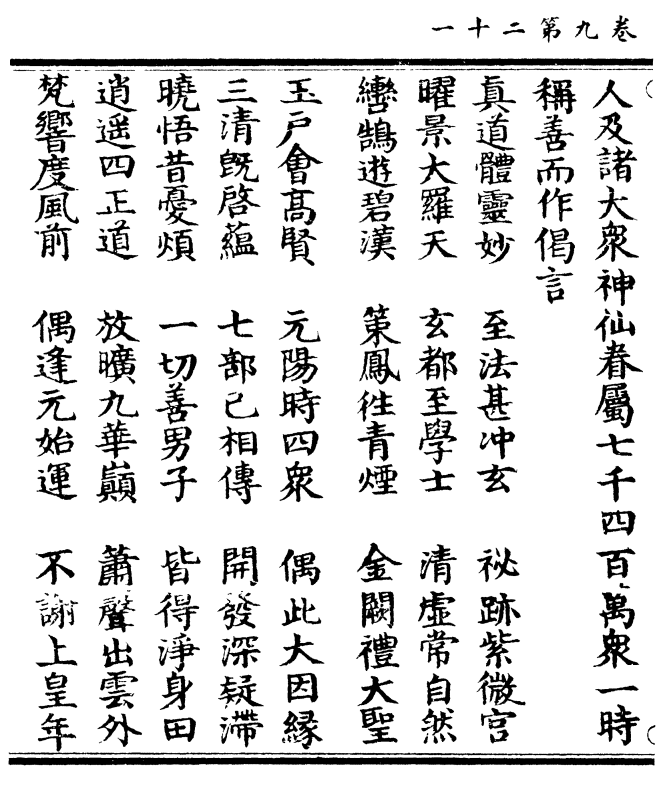 卷九第二十一
人及諸大衆神仙眷屬七千四百萬衆一時
稱善而作偈言
真道體靈妙　至法甚冲玄　祕跡紫微宫
曜景大羅天　玄都至學士　清虛常自然
轡鵠遊碧漢　策鳳徃青煙　金闕禮大聖
玉戸會髙賢　元陽時四衆　偶此大因縁
三清旣啓蘊　七部已相傳　開發深疑滯
曉悟昔憂煩　一切善男子　皆得淨身田
逍遥四正道　放曠九華巔　蕭聲出雲外
梵響度風前　偶逢元始運　不謝上皇年